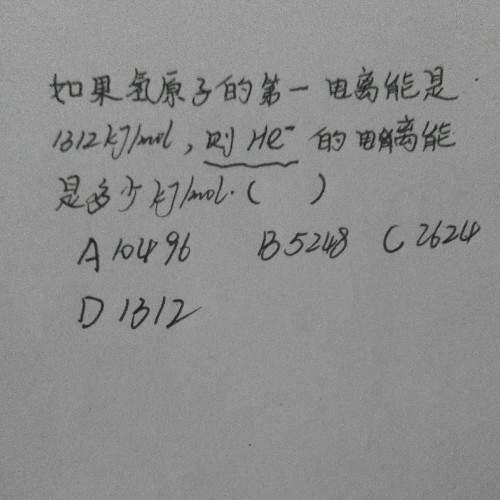 如果氢原子的第一电离能是
1312kJ/mol,则He⁻的电离能
是多少kJ/mol.( )
A 10496 B 5248 C 2624
D 1312